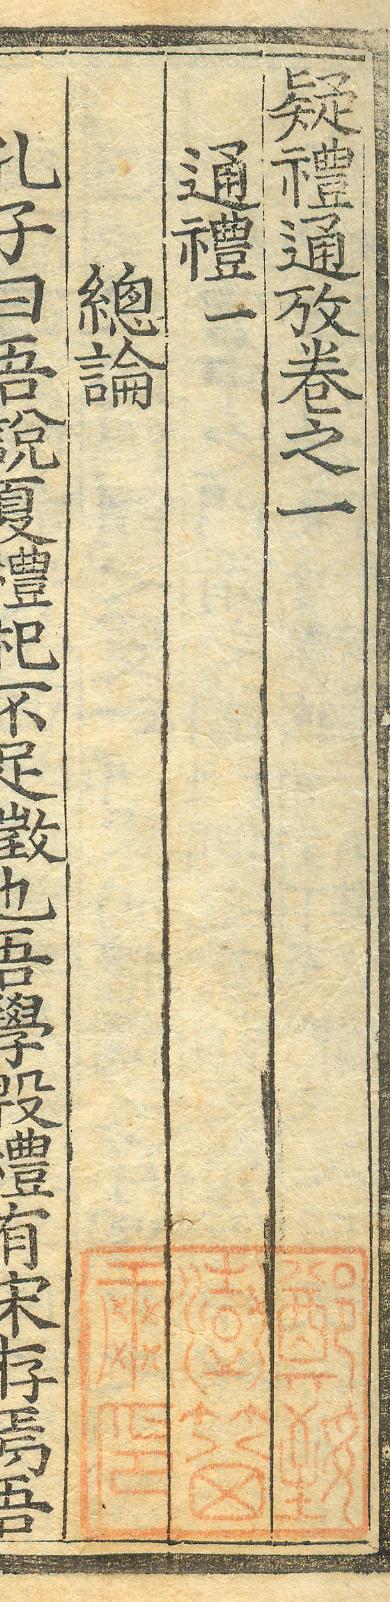 疑禮通攷卷之一
通禮一
總論
孔子曰吾說夏禮杞不足徵也吾學殷禮有宋存焉吾